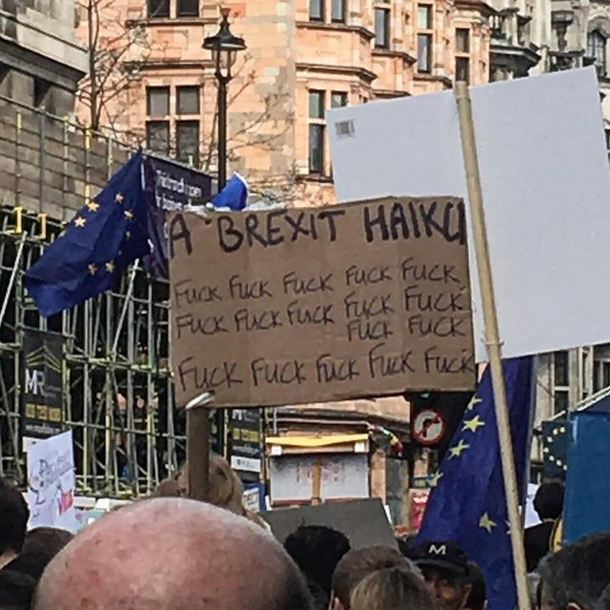 A BREXIT HAIKU
FUCK FUCK FUCK FUCK FUCK
FUCK FUCK FUCK FUCK FUCK
FUCK FUCK
FUCK FUCK FUCK FUCK FUCK
MR
M